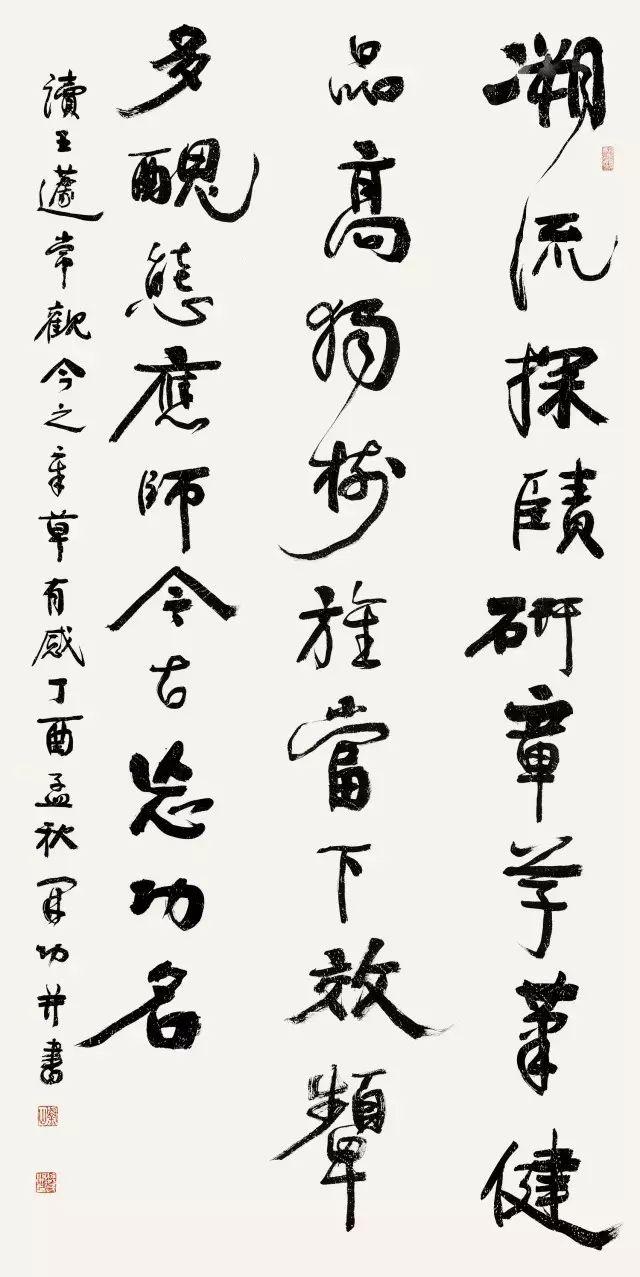 溯流探賾研章草筆健
品高獨樹旌當下效顰
多醜態應師今古忘功名
讀王蘧常觀今之章草有感丁酉孟秋功并書